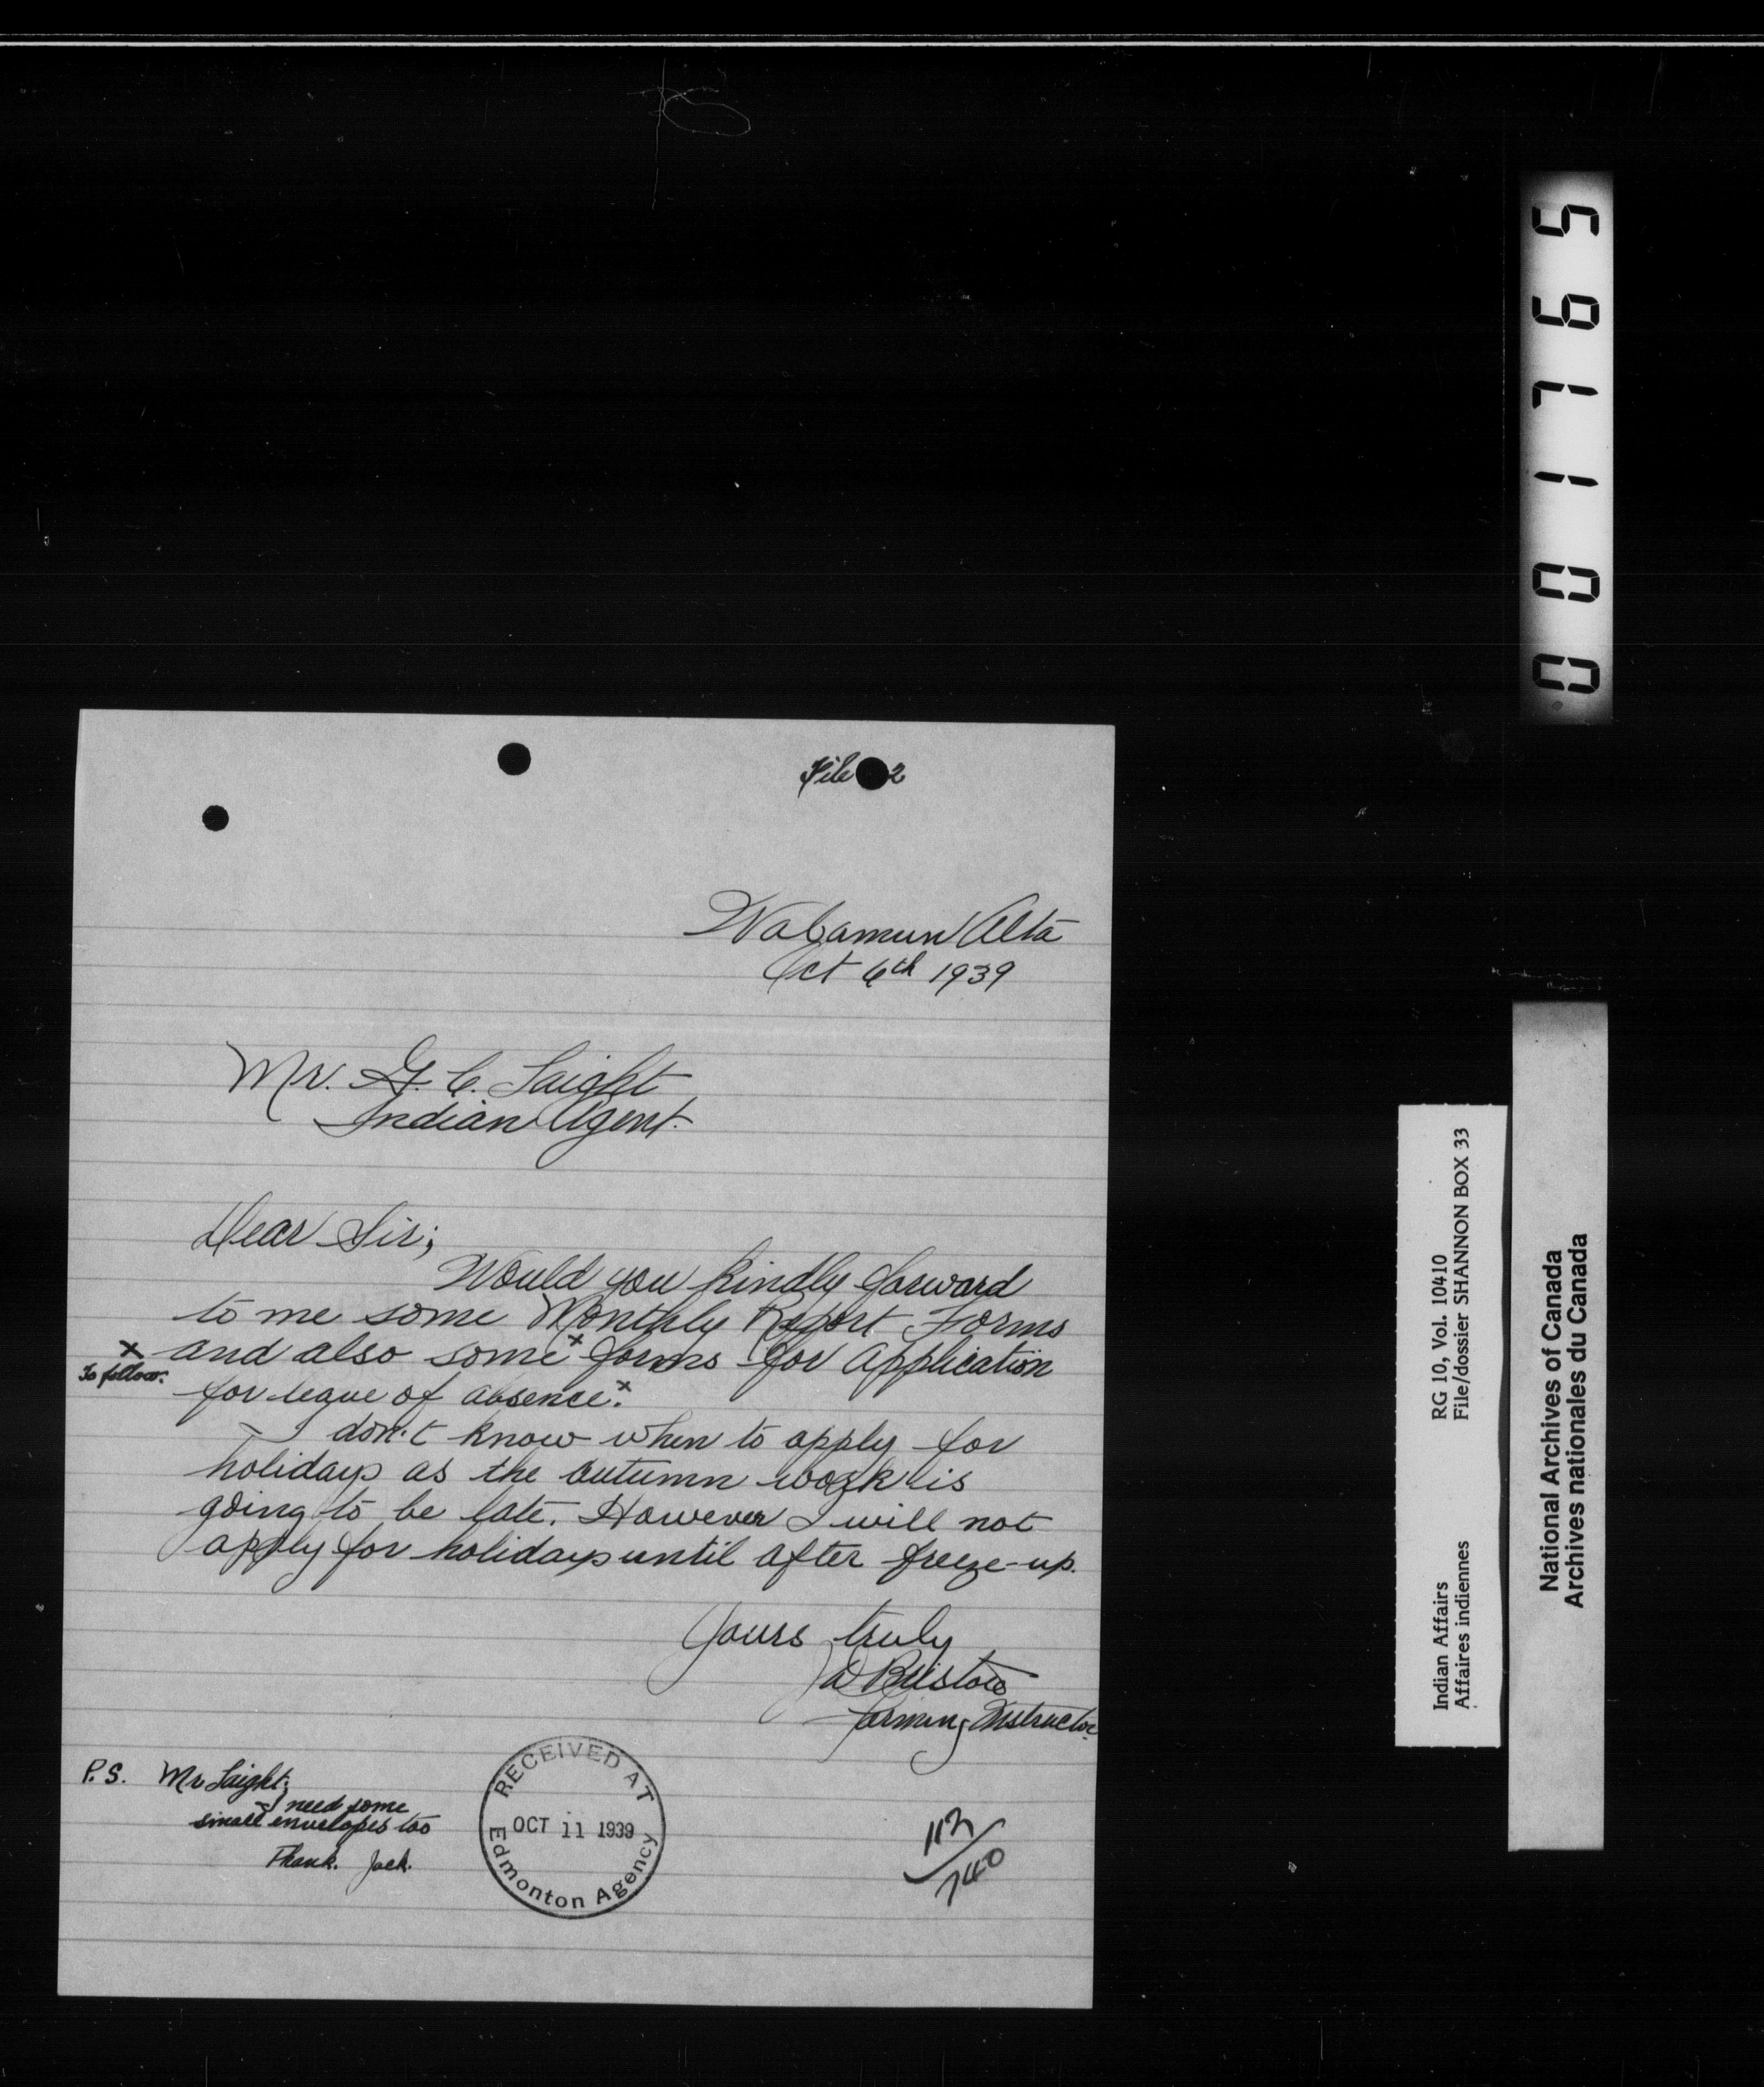 File 2
Wabamun Alta
Oct 6th 1939
Mr. G. C. Laight
Indian Agent.
Dear Sir;
Would you kindly forward
to me some Monthly Report Forms
x and also some x forms for application
To follow.
for leave of absence. x
I don't know when to apply for
holidays as the autumn work is
going to be late. However I will not
apply for holidays until after freeze-up.
Yours truly
Bristow
Farming Instructor.
P.S. Mr Laight;
I need some
small envelopes too
Thank. Jack.
RECEIVED AT
OCT 11 1939
Edmonton Agency
113/740
001765
Indian Affairs RG 10, Vol. 10410
Affaires indiennes File/dossier SHANNON BOX 33
National Archives of Canada
Archives nationales du Canada